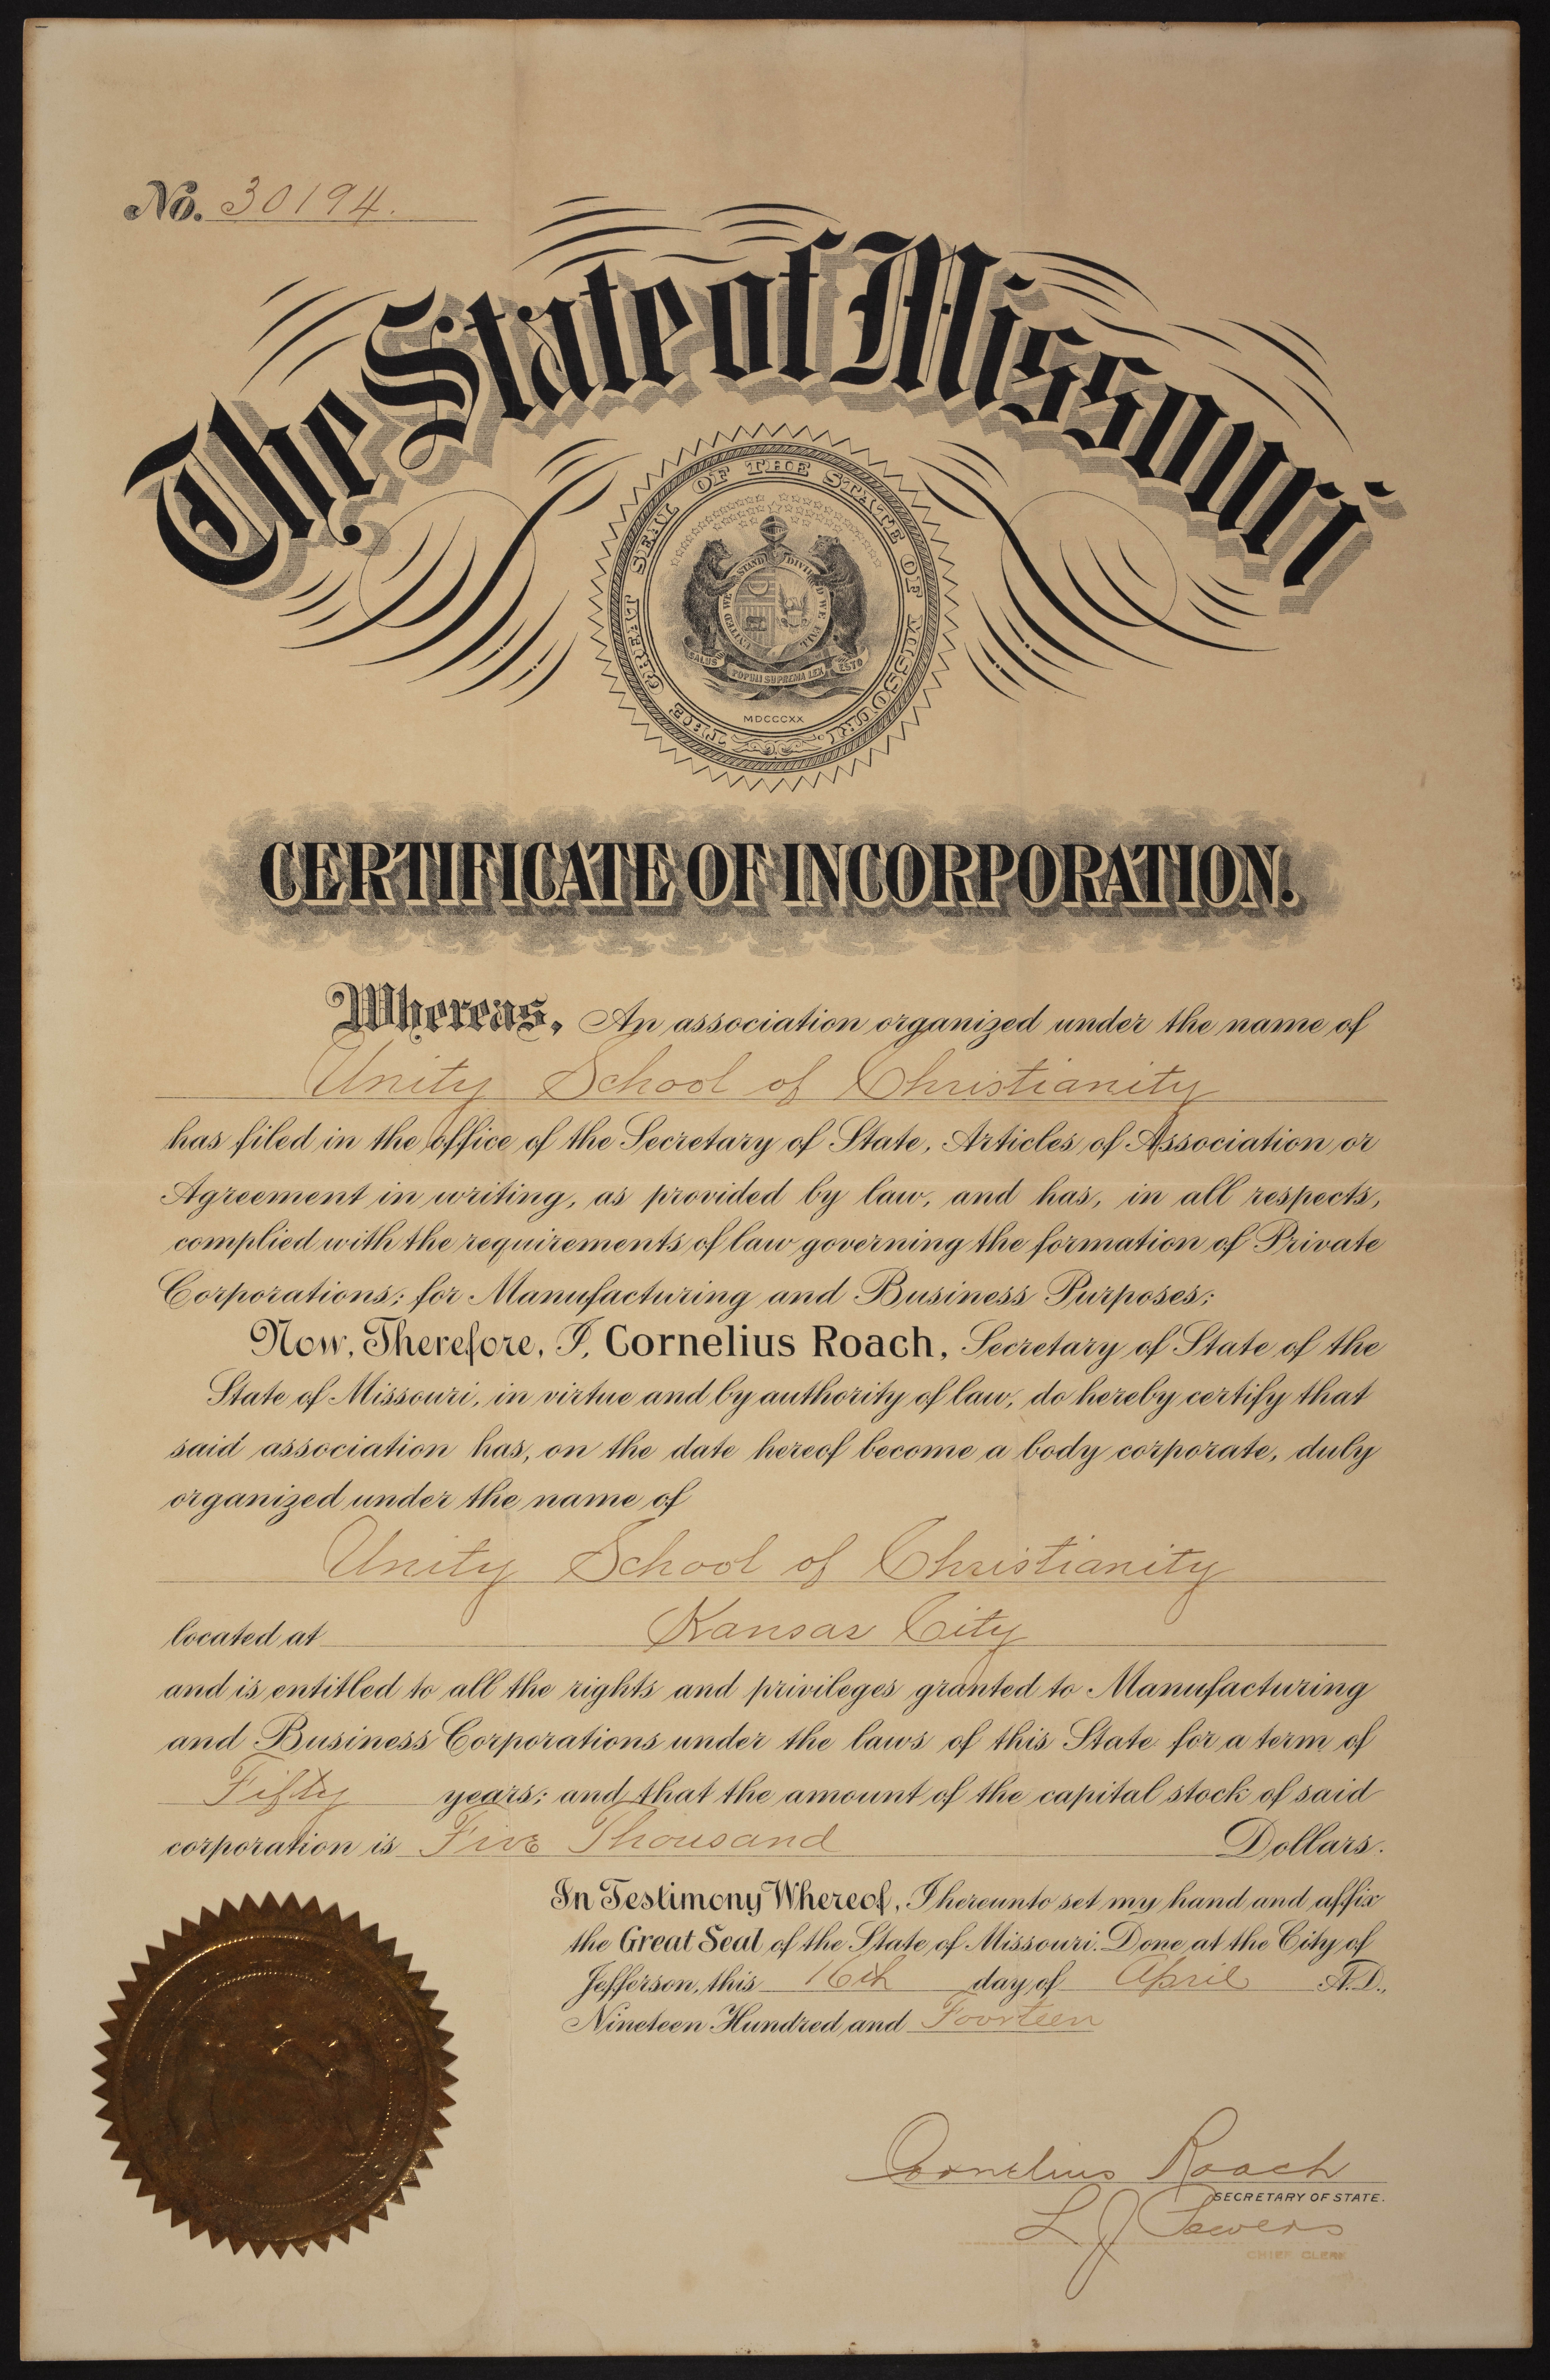 No. 30194.
The State of Missouri
THE GREAT SEAL OF THE STATE OF MISSOURI
UNITED WE STAND DIVIDED WE FALL
SALUS POPULI SUPREMA LEX ESTO
MDCCCXX
CERTIFICATE OF INCORPORATION.
Whereas, An association organized under the name of
Unity School of Christianity
has filed in the office of the Secretary of State, Articles of Association or
Agreement in writing, as provided by law, and has, in all respects,
complied with the requirements of law governing the formation of Private
Corporations; for Manufacturing and Business Purposes;
Now, Therefore, I, Cornelius Roach, Secretary of State of the
State of Missouri, in virtue and by authority of law, do hereby certify that
said association has, on the date hereof become a body corporate, duly
organized under the name of
Unity School of Christianity
located at Kansas City
and is entitled to all the rights and privileges granted to Manufacturing
and Business Corporations under the laws of this State for a term of
Fifty years; and that the amount of the capital stock of said
corporation is Five Thousand Dollars.
In Testimony Whereof, I hereunto set my hand and affix
the Great Seal of the State of Missouri. Done at the City of
Jefferson, this 16th day of April A.D.,
Nineteen Hundred and Fourteen
Cornelius Roach
SECRETARY OF STATE.
L J
CHIEF CLERK